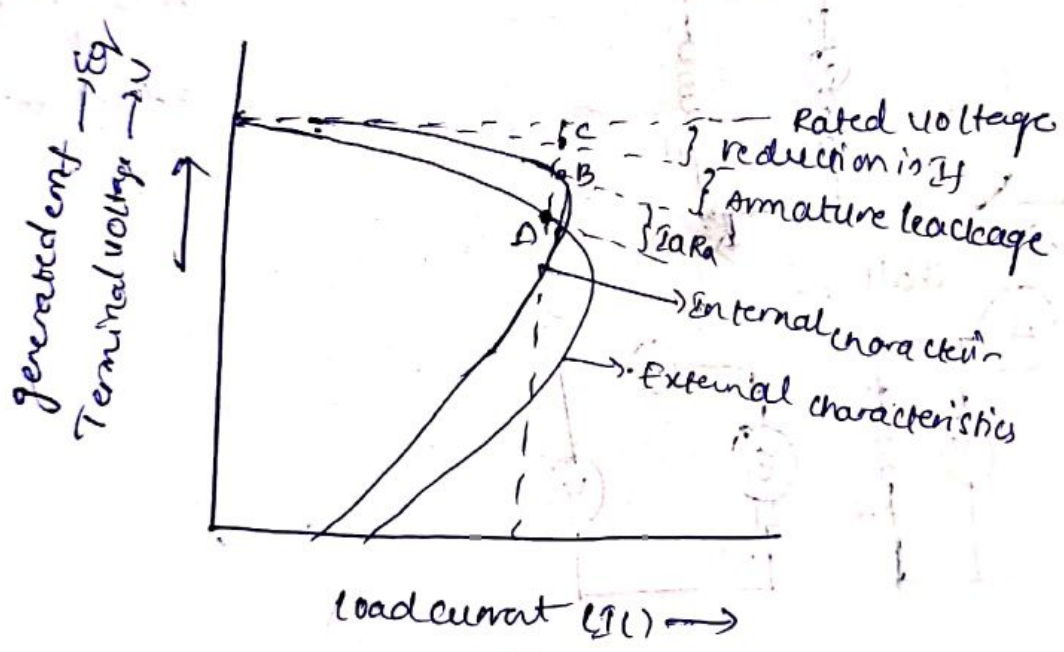 generated emf → Eg
Terminal voltage → V
Rated voltage
C
reduction in If
B
Armature leackage
IaRa
D
Internal
External characteristics
load current (Il) →